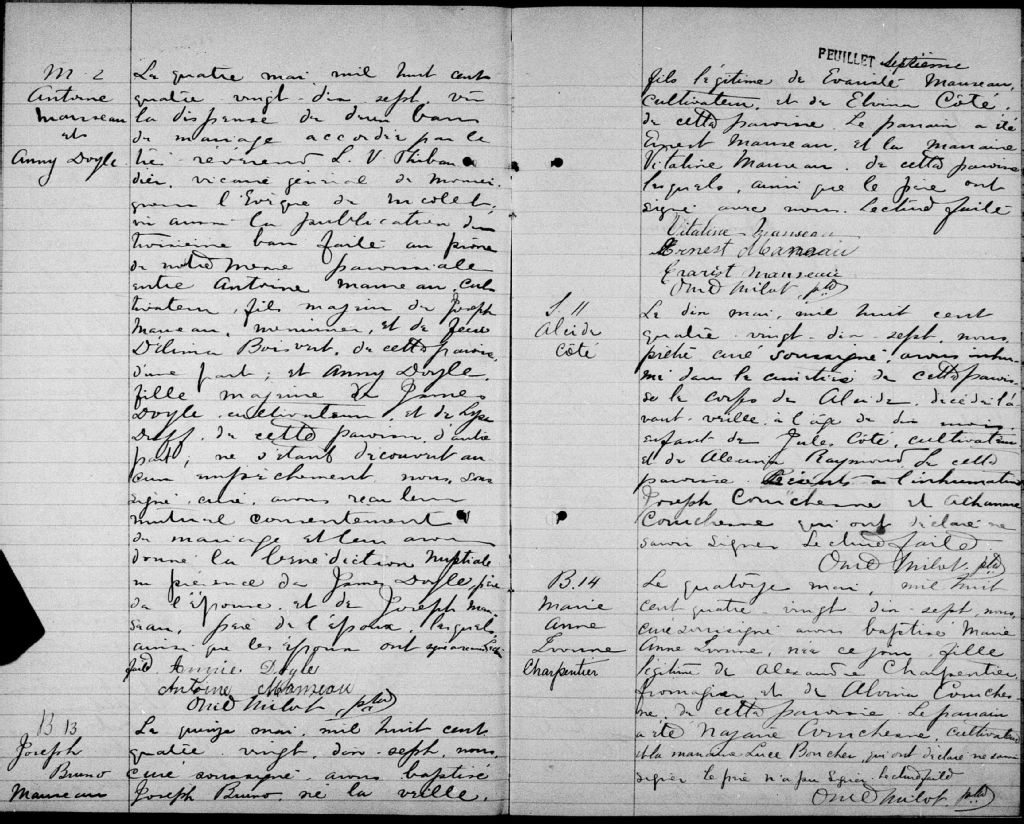 M. 2
Antoine
Manseau
et
Anny Doyle
Le quatre mai, mil huit cent
quatre vingt-dix sept, vu
la dispense de deux bans
de mariage accordée par le
très révérend L. V. Thibau
dier, vicaire général de Monsei
gneur l'Evêque de Nicolet;
vu aussi la publication du
troisième ban faite au prône
de notre messe paroissiale
entre Antoine Manseau, cul
tivateur, fils majeur de Joseph
Manseau, menuisier, et de feue
Délima Boisvert, de cette paroisse,
d'une part; et Anny Doyle,
fille majeure de James
Doyle cultivateur et de
Duff, de cette paroisse, d'autre
part; ne s'étant découvert au
cun empêchement, nous, sous
signé, curé, avons reçu leur
mutuel consentement
de mariage et leur avons
donné la bénédiction nuptiale
en présence de James Doyle, père
de l'épouse, et de Joseph Man
seau, père de l'époux, lesquels,
ainsi que les époux ont signé avec nous. Lecture
faite. Annie Doyle
Antoine Manseau
Ovid Milot ptre
B 13
Joseph
Bruno
Manseau
Le quinze mai, mil huit cent
quatre-vingt-dix-sept, nous,
curé soussigné, avons baptisé
Joseph Bruno, né la veille,
FEUILLET Septième
fils légitime de Evariste Manseau,
cultivateur, et de Elvina Côté,
de cette paroisse. Le parrain a été
Ernest Manseau, et la marraine
Vitaline Manseau, de cette paroisse
lesquels, ainsi que le père ont
signé avec nous. Lecture faite
Vitaline Manseau
Ernest Manseau
Evarist Manseau
Ovid Milot, ptre
S. 11
Alcide
Côté
Le dix mai, mil huit cent
quatre-vingt-dix-sept, nous,
prêtre curé soussigné, avons inhu
mé dans le cimetière de cette parois
se le corps de Alcide, décédé l'a
vant-veille, à l'âge de dix mois,
enfant de Jules Côté, cultivateur
et de Raymond de cette
paroisse. Présents à l'inhumation
Joseph Courchesne et Athanase
Courchesne qui ont déclaré ne
savoir signer. Lecture faite.
Ovid Milot, ptre
B. 14
Marie
Anne
Ivonne
Charpentier
Le quatorze mai, mil huit
cent quatre-vingt dix-sept, nous,
curé soussigné avons baptisé Marie
Anne Ivonne, née ce jour, fille
légitime de Alexandre Charpentier,
fromagier, et de Alvina Courches
ne, de cette paroisse. Le parrain
a été Nazaire Courchesne, cultivateur
et la marraine Luce Boucher, qui ont déclaré ne savoir
signer. Le père n'a pu signer. Lecture faite
Ovid Milot ptre